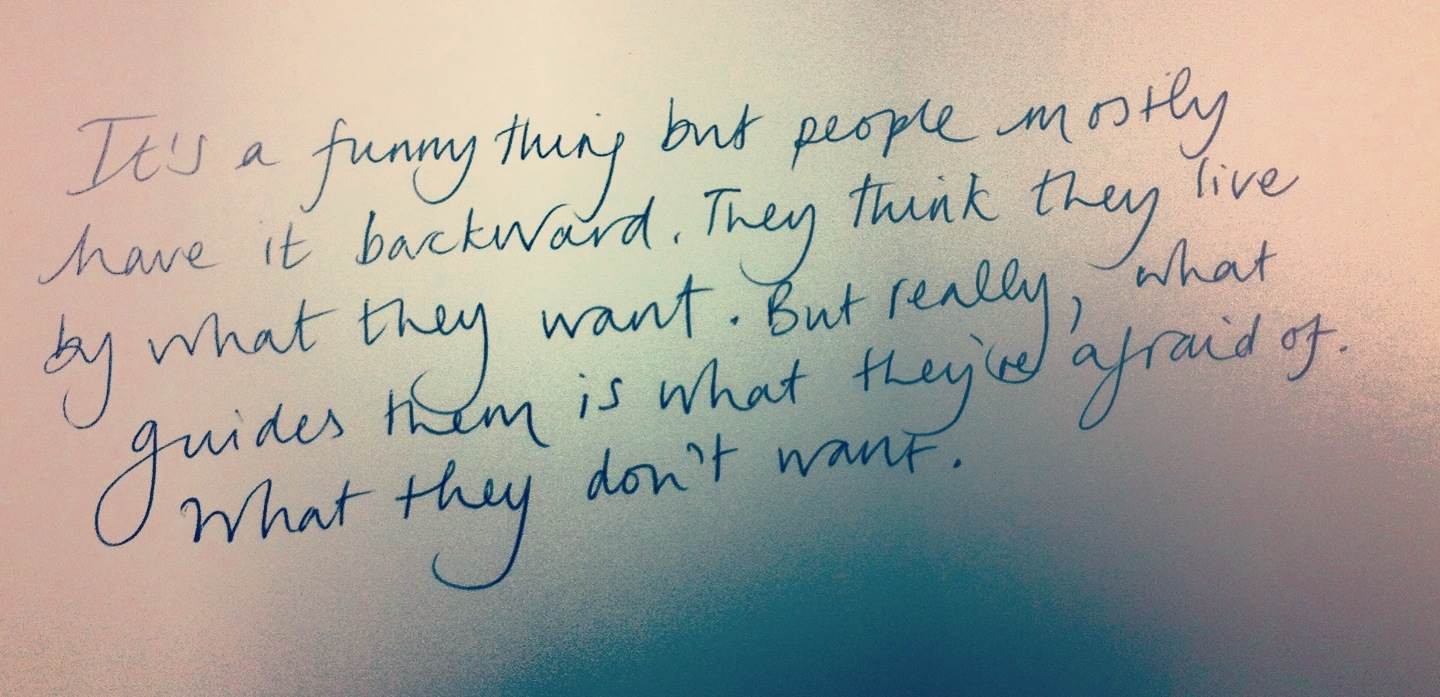 It's a funny thing but people mostly
have it backward. They think they live
by what they want. But really, what
guides them is what they're afraid of.
What they don't want.